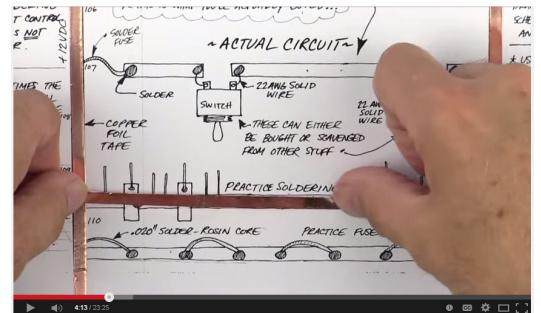 106
T CONTROL
S NOT
R.
+12VDC
SOLDER
FUSE
~ACTUAL CIRCUIT~
107
SOLDER
SWITCH
22 AWG SOLID
WIRE
22 AW
SOLID
WIRE
TIMES THE
COPPER
FOIL
TAPE
THESE CAN EITHER
BE BOUGHT OR SCAVENGED
FROM OTHER STUFF
PRACTICE SOLDERING
110
.020" SOLDER-ROSIN CORE
PRACTICE FUSE
SCHE
AN
* US
4:13 / 23:25